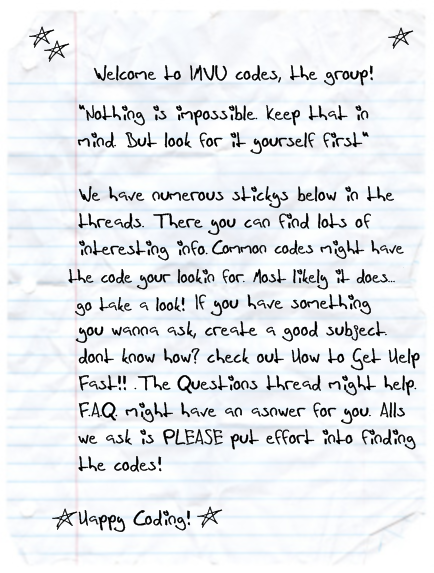 Welcome to IMVU codes, the group!
"Nothing is impossible. Keep that in
mind. But look for it yourself first"
We have numerous stickys below in the
threads. There you can find lots of
interesting info. Common codes might have
the code your lookin for. Most likely it does...
go take a look! If you have something
you wanna ask, create a good subject.
dont know how? check out How to Get Help
Fast!! .The Questions thread might help.
F.A.Q. might have an asnwer for you. Alls
we ask is PLEASE put effort into finding
the codes!
Happy Coding!